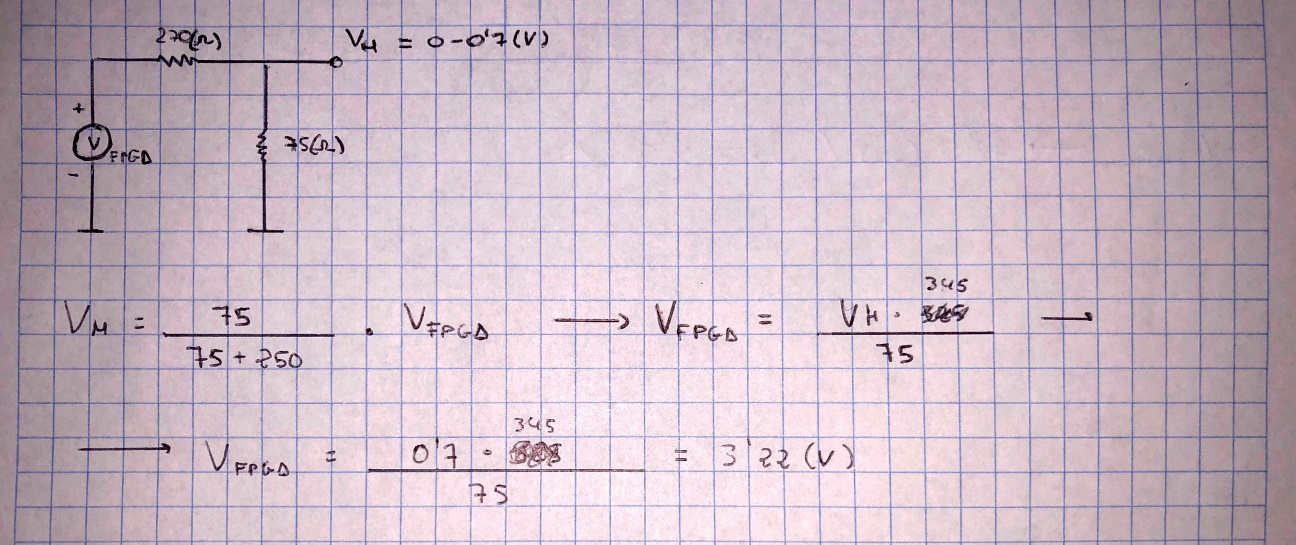 270(Ω)
V_M = 0-0'7(V)
+
V_FPGA
-
75(Ω)
V_M = 75 / (75 + 250) · V_FPGA → V_FPGA = V_M · 345 / 75 →
→ V_FPGA = 0'7 · 345 / 75 = 3'22 (V)